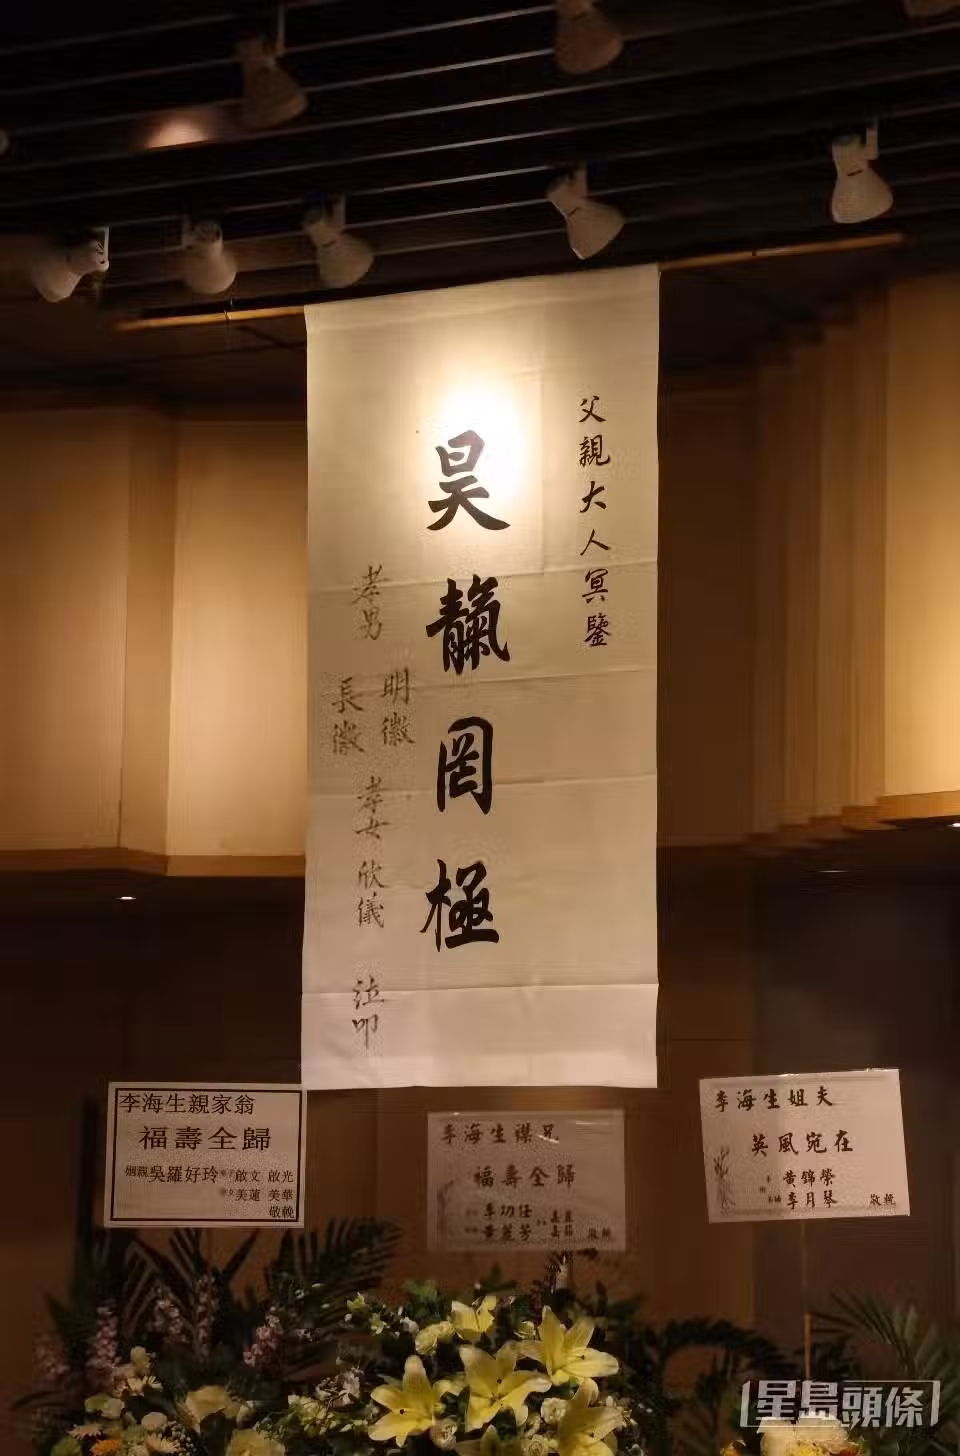 父親大人冥鑒
昊靝罔極
孝男
明徽
長徽
孝女欣儀
泣叩
李海生親家翁
福壽全歸
姻親吳羅好玲
啟文 啟光
美蓮 美華
敬輓
李海生襟兄
福壽全歸
敬輓
李海生姐夫
英風宛在
黄錦榮
李月琴
敬輓
星島頭條